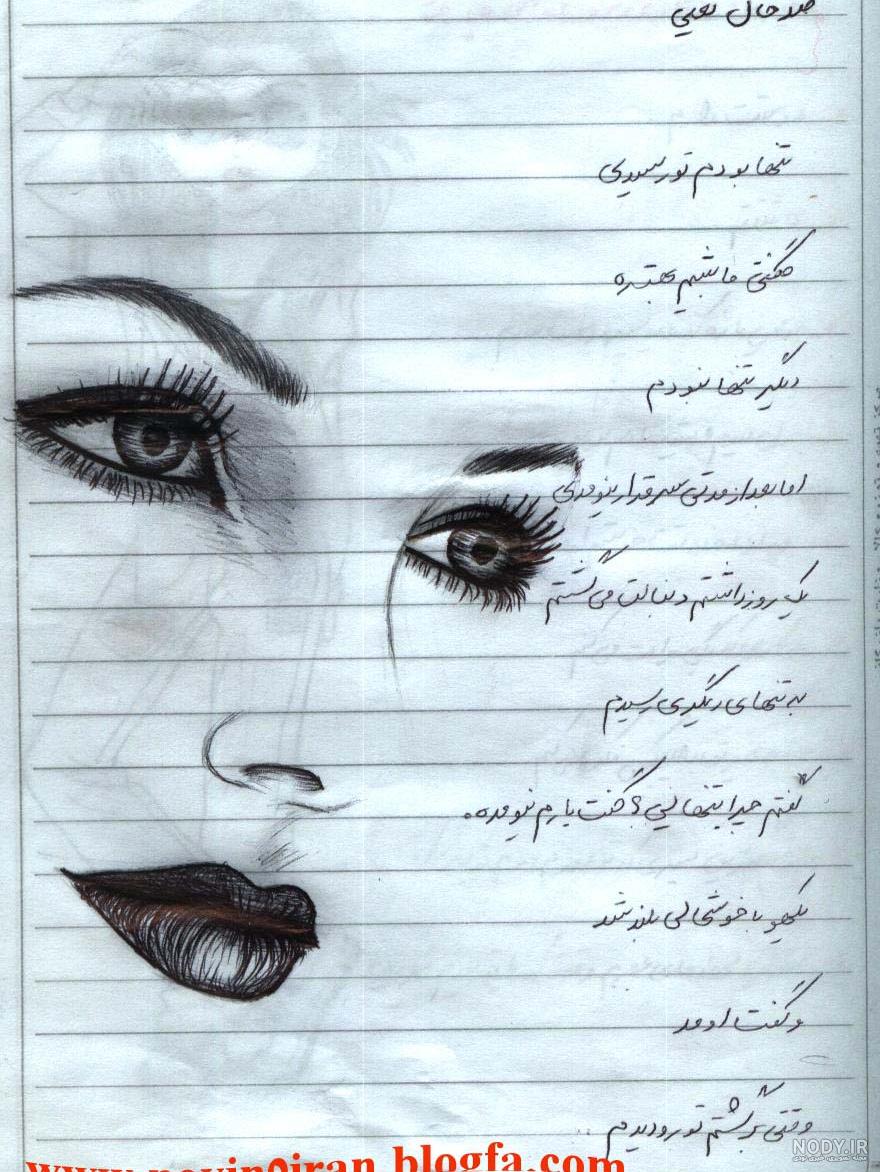 تنها بودم تو رسیدی
گفتی ما شیم بهتره
دیگه تنها نبودم
اما بعد از مدتی سر قرار نیومدی
یک روز داشتم دنبالت می گشتم
به تنهای دیگری رسیدم
گفتم چرا تنهایی؟ گفت یارم نیومده.
یکهو با خوشحالی بلند شد
و گفت اومد
وقتی برگشتم تو رو دیدم ..
NODY.IR
www.novin9iran.blogfa.com